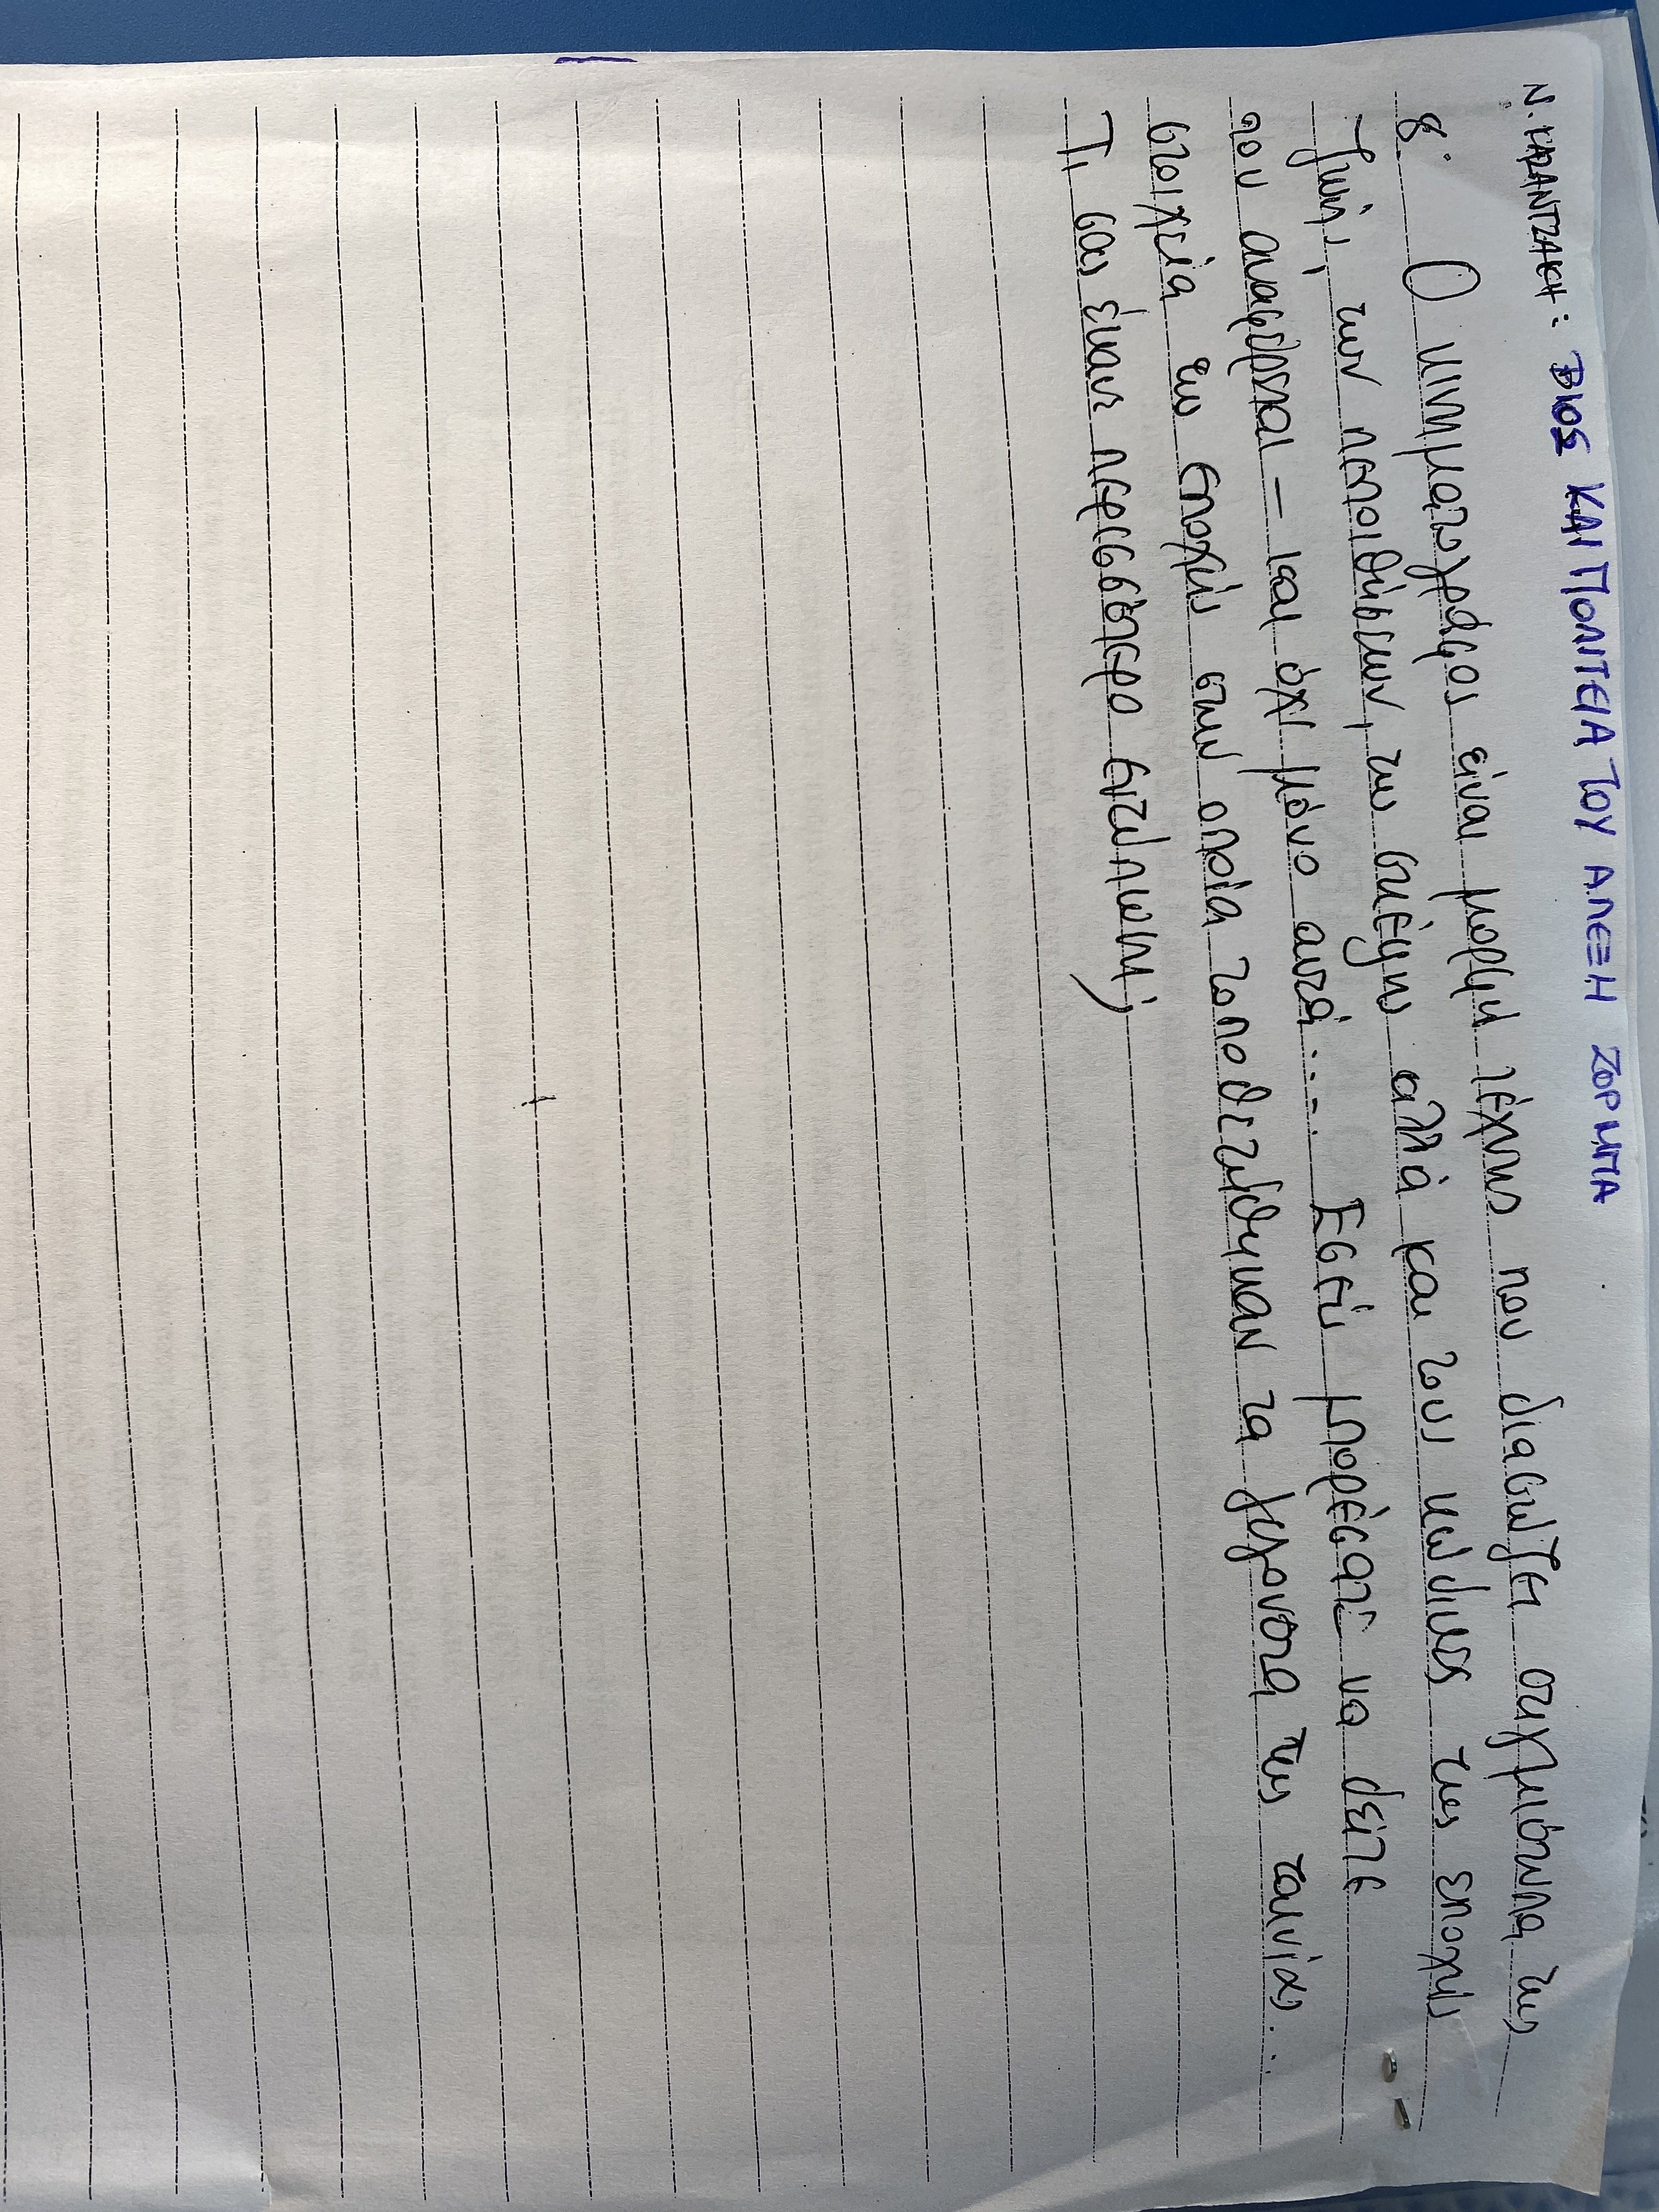 Ν. ΚΑΖΑΝΤΖΑΚΗ: ΒΙΟΣ ΚΑΙ ΠΟΛΙΤΕΙΑ ΤΟΥ ΑΛΕΞΗ ΖΟΡΜΠΑ
8. Ο κινηματογράφος είναι μορφή τέχνης που διασώζει στιγμιότυπα της
ζωής, των πεποιθήσεων, της σκέψης αλλά και τους κώδικες της εποχής
που αναφέρεται - και όχι μόνο αυτά.... Εσείς μπορέσατε να βρείτε
στοιχεία της εποχής στην οποία τοποθετήθηκαν τα γεγονότα της ταινίας...
Τι σας έκανε περισσότερο εντύπωση;